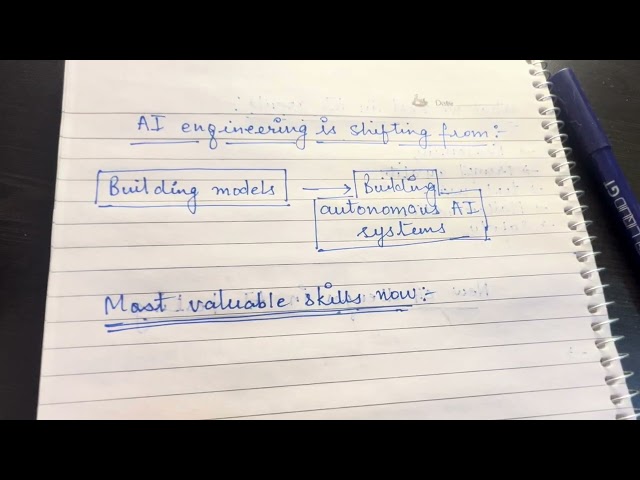 Date
AI engineering is shifting from:-
Building models → Building
autonomous AI
systems
Most valuable skills now:-